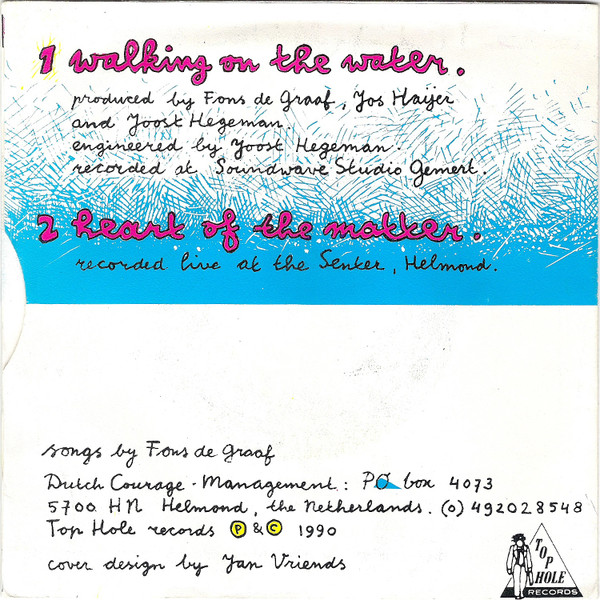 1 walking on the water.
produced by Fons de Graaf, Jos Haijer
and Joost Hegeman.
engineered by Joost Hegeman.
recorded at Soundwave Studio Gemert.
2 heart of the matter.
recorded live at the Senter, Helmond.
songs by Fons de Graaf
Dutch Courage - Management: PO box 4073
5700 HN Helmond, the Netherlands. (0) 492028548
Top Hole records Ⓟ & Ⓒ 1990
cover design by Jan Vriends
TOP
HOLE
RECORDS